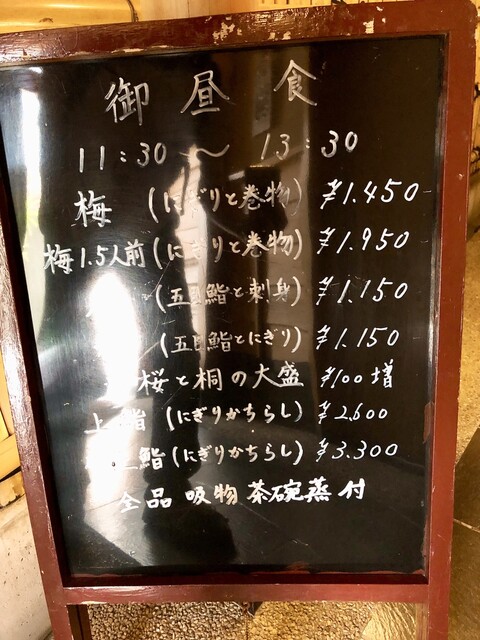 御昼食
11:30〜13:30
梅 (にぎりと巻物) ¥1.450
梅1.5人前(にぎりと巻物) ¥1.950
(五目鮨と刺身) ¥1.150
(五目鮨とにぎり) ¥1.150
桜と桐の大盛 ¥100増
上鮨 (にぎりかちらし) ¥2.600
上鮨 (にぎりかちらし) ¥3.300
全品 吸物 茶碗蒸付